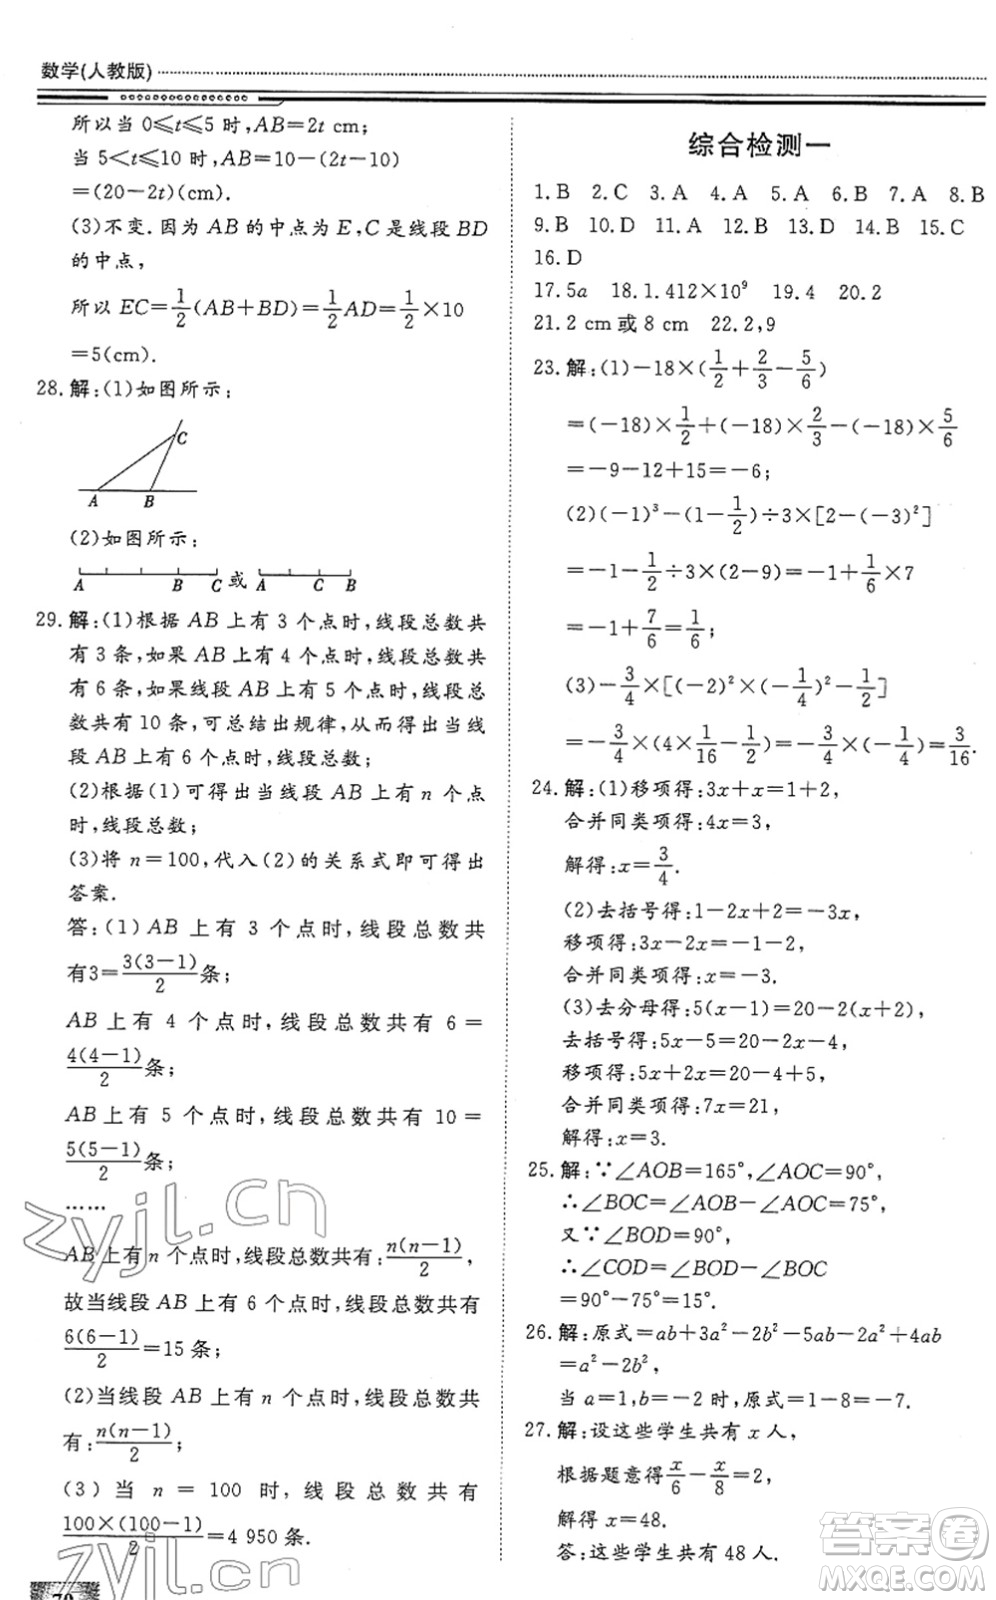 数学(人教版)
所以当 0≤t≤5 时,AB=2t cm;
当 5<t≤10 时,AB=10-(2t-10)
=(20-2t)(cm).
(3)不变.因为 AB 的中点为 E,C 是线段 BD
的中点,
所以 EC=\frac{1}{2}(AB+BD)=\frac{1}{2}AD=\frac{1}{2}×10
=5(cm).
28.解:(1)如图所示:
C
A B
(2)如图所示:
A B C 或 A C B
29.解:(1)根据 AB 上有 3 个点时,线段总数共
有 3 条,如果 AB 上有 4 个点时,线段总数共
有 6 条,如果线段 AB 上有 5 个点时,线段总
数共有 10 条,可总结出规律,从而得出当线
段 AB 上有 6 个点时,线段总数;
(2)根据(1)可得出当线段 AB 上有 n 个点
时,线段总数;
(3)将 n=100,代入(2)的关系式即可得出
答案.
答:(1)AB 上有 3 个点时,线段总数共
有3=\frac{3(3-1)}{2}条;
AB 上有 4 个点时,线段总数共有 6=
\frac{4(4-1)}{2}条;
AB 上有 5 个点时,线段总数共有 10=
\frac{5(5-1)}{2}条;
……
AB 上有 n 个点时,线段总数共有:\frac{n(n-1)}{2},
故当线段 AB 上有 6 个点时,线段总数共有
\frac{6(6-1)}{2}=15 条;
(2)当线段 AB 上有 n 个点时,线段总数共
有:\frac{n(n-1)}{2};
(3)当 n=100 时,线段总数共有
\frac{100×(100-1)}{2}=4 950 条.
70
综合检测一
1.B 2.C 3.A 4.A 5.A 6.B 7.A 8.B
9.B 10.D 11.A 12.B 13.D 14.B 15.C
16.D
17.5a 18.1.412×10^9 19.4 20.2
21.2 cm或 8 cm 22.2,9
23.解:(1)-18×(\frac{1}{2}+\frac{2}{3}-\frac{5}{6})
=(-18)×\frac{1}{2}+(-18)×\frac{2}{3}-(-18)×\frac{5}{6}
=-9-12+15=-6;
(2)(-1)^3-(1-\frac{1}{2})÷3×[2-(-3)^2]
=-1-\frac{1}{2}÷3×(2-9)=-1+\frac{1}{6}×7
=-1+\frac{7}{6}=\frac{1}{6};
(3)-\frac{3}{4}×[(-2)^2×(-\frac{1}{4})^2-\frac{1}{2}]
=-\frac{3}{4}×(4×\frac{1}{16}-\frac{1}{2})=-\frac{3}{4}×(-\frac{1}{4})=\frac{3}{16}.
24.解:(1)移项得:3x+x=1+2,
合并同类项得:4x=3,
解得:x=\frac{3}{4}.
(2)去括号得:1-2x+2=-3x,
移项得:3x-2x=-1-2,
合并同类项得:x=-3.
(3)去分母得:5(x-1)=20-2(x+2),
去括号得:5x-5=20-2x-4,
移项得:5x+2x=20-4+5,
合并同类项得:7x=21,
解得:x=3.
25.解:∵∠AOB=165°,∠AOC=90°,
∴∠BOC=∠AOB-∠AOC=75°,
又∵∠BOD=90°,
∴∠COD=∠BOD-∠BOC
=90°-75°=15°.
26.解:原式=ab+3a^2-2b^2-5ab-2a^2+4ab
=a^2-2b^2,
当 a=1,b=-2 时,原式=1-8=-7.
27.解:设这些学生共有 x 人,
根据题意得\frac{x}{6}-\frac{x}{8}=2,
解得 x=48.
答:这些学生共有 48 人.
zyjl.cn
zyjl.cn
答案圈
MXQE.COM